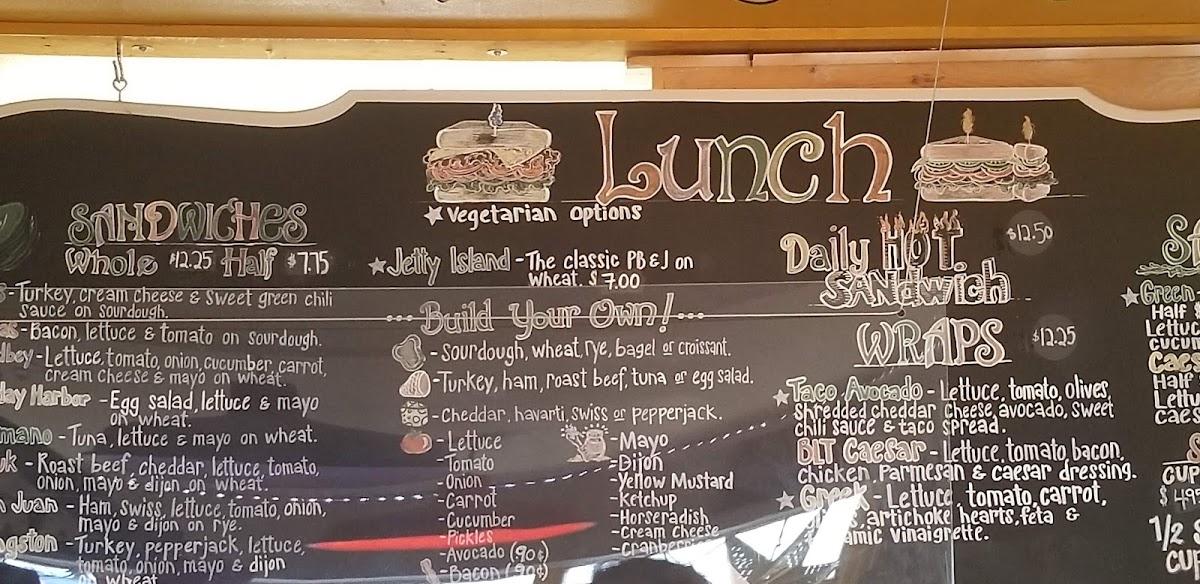 Lunch
Vegetarian options
SANDWICHES
Whole $12.25 Half $7.75
-Turkey, cream cheese & sweet green chili
sauce on sourdough.
-Bacon, lettuce & tomato on sourdough.
-Lettuce, tomato, onion, cucumber, carrot,
cream cheese & mayo on wheat.
Harbor -Egg salad, lettuce & mayo
on wheat.
-Tuna, lettuce & mayo on wheat.
- Roast beef, cheddar, lettuce, tomato,
onion, mayo & dijon on wheat.
Juan - Ham, swiss, lettuce, tomato, onion,
mayo & dijon on rye.
-Turkey, pepperjack, lettuce,
tomato, onion, mayo & dijon
on wheat
Jetty Island -The classic PB&J on
wheat. $7.00
...Build Your Own!...
-Sourdough, wheat, rye, bagel or croissant.
-Turkey, ham, roast beef, tuna or egg salad.
-Cheddar, havarti, swiss or pepperjack.
-Lettuce
-Tomato
-Onion
-Carrot
-Cucumber
-Pickles
-Avocado (90¢)
-Bacon (90¢)
-Mayo
-Dijon
-Yellow Mustard
-Ketchup
-Horseradish
-Cream Cheese
Daily HOT $12.50
SANDWich
WRAPS $12.25
Taco Avocado - Lettuce, tomato, olives,
shredded cheddar cheese, avocado, sweet
chili sauce & taco spread.
BLT Caesar - Lettuce, tomato, bacon,
chicken, Parmesan & caesar dressing.
Greek - Lettuce, tomato, carrot,
artichoke hearts, feta &
Vinaigrette.
Green
Half
Half
1/2